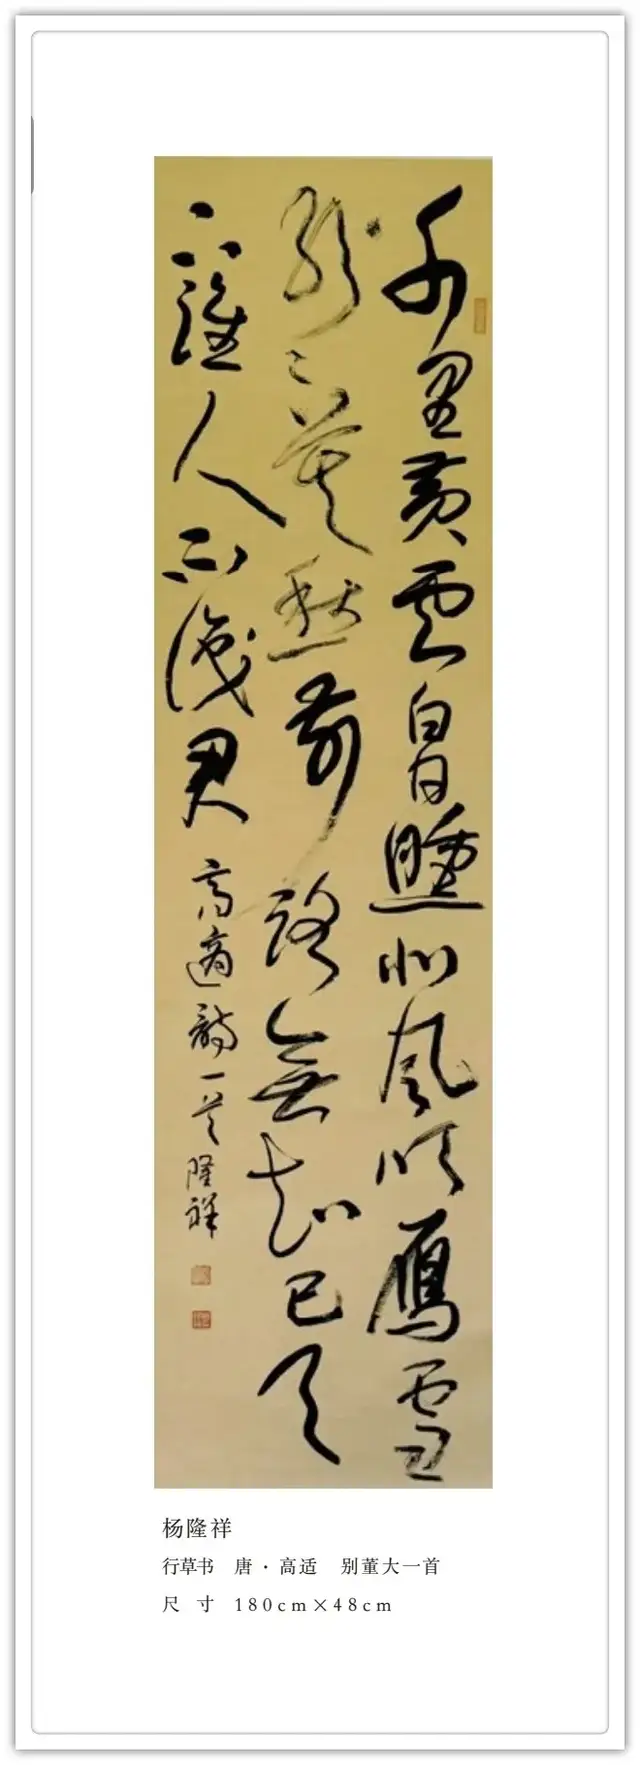 千里黄雲白日曛北風吹雁雪
紛〻莫愁前路無知己天
下誰人不識君
高適詩一首 隆祥
杨隆祥
行草书 唐·高适 别董大一首
尺寸 180cm×48cm